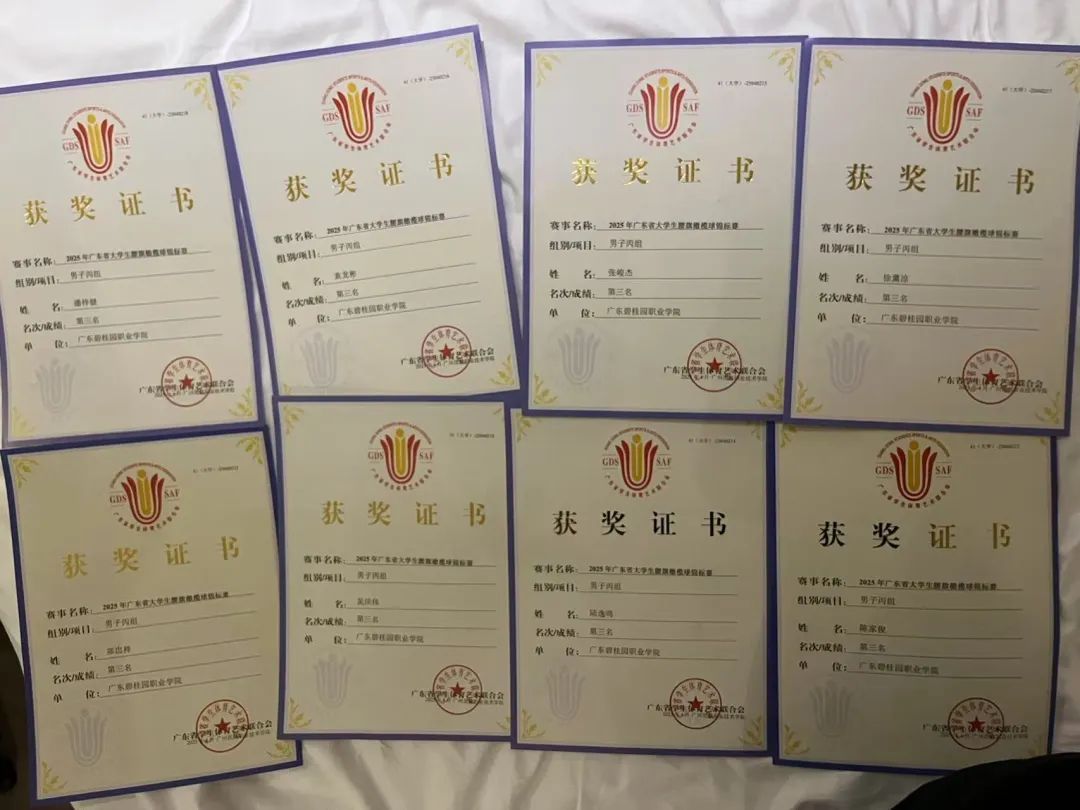 GDS SAF
获奖证书
赛事名称: 2025年广东省大学生腰旗橄榄球锦标赛
组别/项目: 男子丙组
姓 名:
名次/成绩: 第三名
单 位: 广东碧桂园职业学院
广东省学生体育艺术联合会
GDS SAF
获奖证书
赛事名称: 2025年广东省大学生腰旗橄榄球锦标赛
组别/项目: 男子丙组
姓 名: 袁龙彬
名次/成绩: 第三名
单 位: 广东碧桂园职业学院
广东省学生体育艺术联合会
GDS SAF
获奖证书
赛事名称: 2025年广东省大学生腰旗橄榄球锦标赛
组别/项目: 男子丙组
姓 名: 张峻杰
名次/成绩: 第三名
单 位: 广东碧桂园职业学院
广东省学生体育艺术联合会
GDS SAF
获奖证书
赛事名称: 2025年广东省大学生腰旗橄榄球锦标赛
组别/项目: 男子丙组
姓 名:
名次/成绩: 第三名
单 位: 广东碧桂园职业学院
广东省学生体育艺术联合会
GDS SAF
获奖证书
赛事名称: 2025年广东省大学生腰旗橄榄球锦标赛
组别/项目: 男子丙组
姓 名:
名次/成绩: 第三名
单 位: 广东碧桂园职业学院
广东省学生体育艺术联合会
GDS SAF
获奖证书
赛事名称: 2025年广东省大学生腰旗橄榄球锦标赛
组别/项目: 男子丙组
姓 名:
名次/成绩: 第三名
单 位: 广东碧桂园职业学院
广东省学生体育艺术联合会
GDS SAF
获奖证书
赛事名称: 2025年广东省大学生腰旗橄榄球锦标赛
组别/项目: 男子丙组
姓 名: 陆逸鸣
名次/成绩: 第三名
单 位: 广东碧桂园职业学院
广东省学生体育艺术联合会
GDS SAF
获奖证书
赛事名称: 2025年广东省大学生腰旗橄榄球锦标赛
组别/项目: 男子丙组
姓 名: 陈家俊
名次/成绩: 第三名
单 位: 广东碧桂园职业学院
广东省学生体育艺术联合会